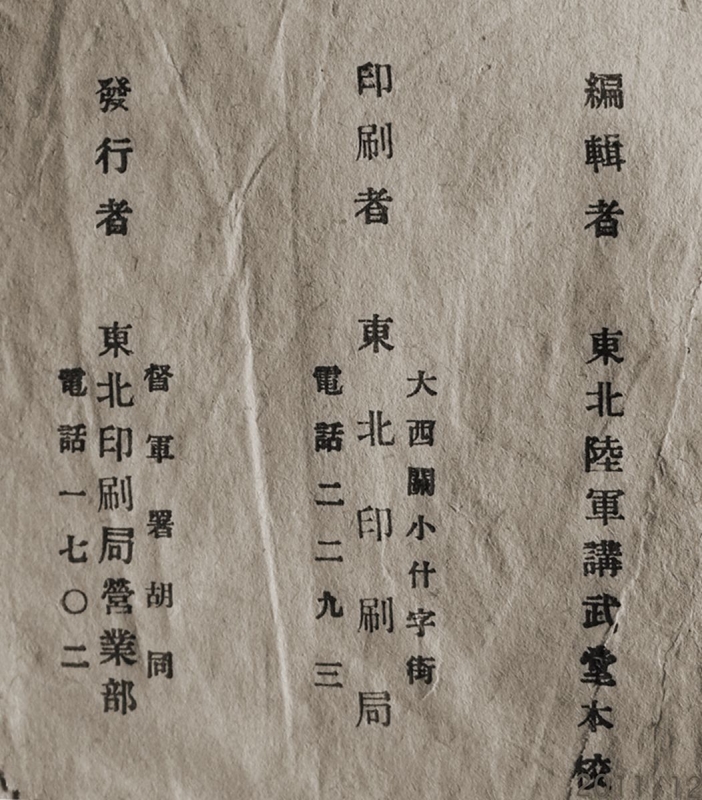 編輯者　東北陸軍講武堂本校
大西關小什字街
印刷者　東北印刷局
電話二二九三
督軍署胡同
發行者　東北印刷局營業部
電話一七〇二